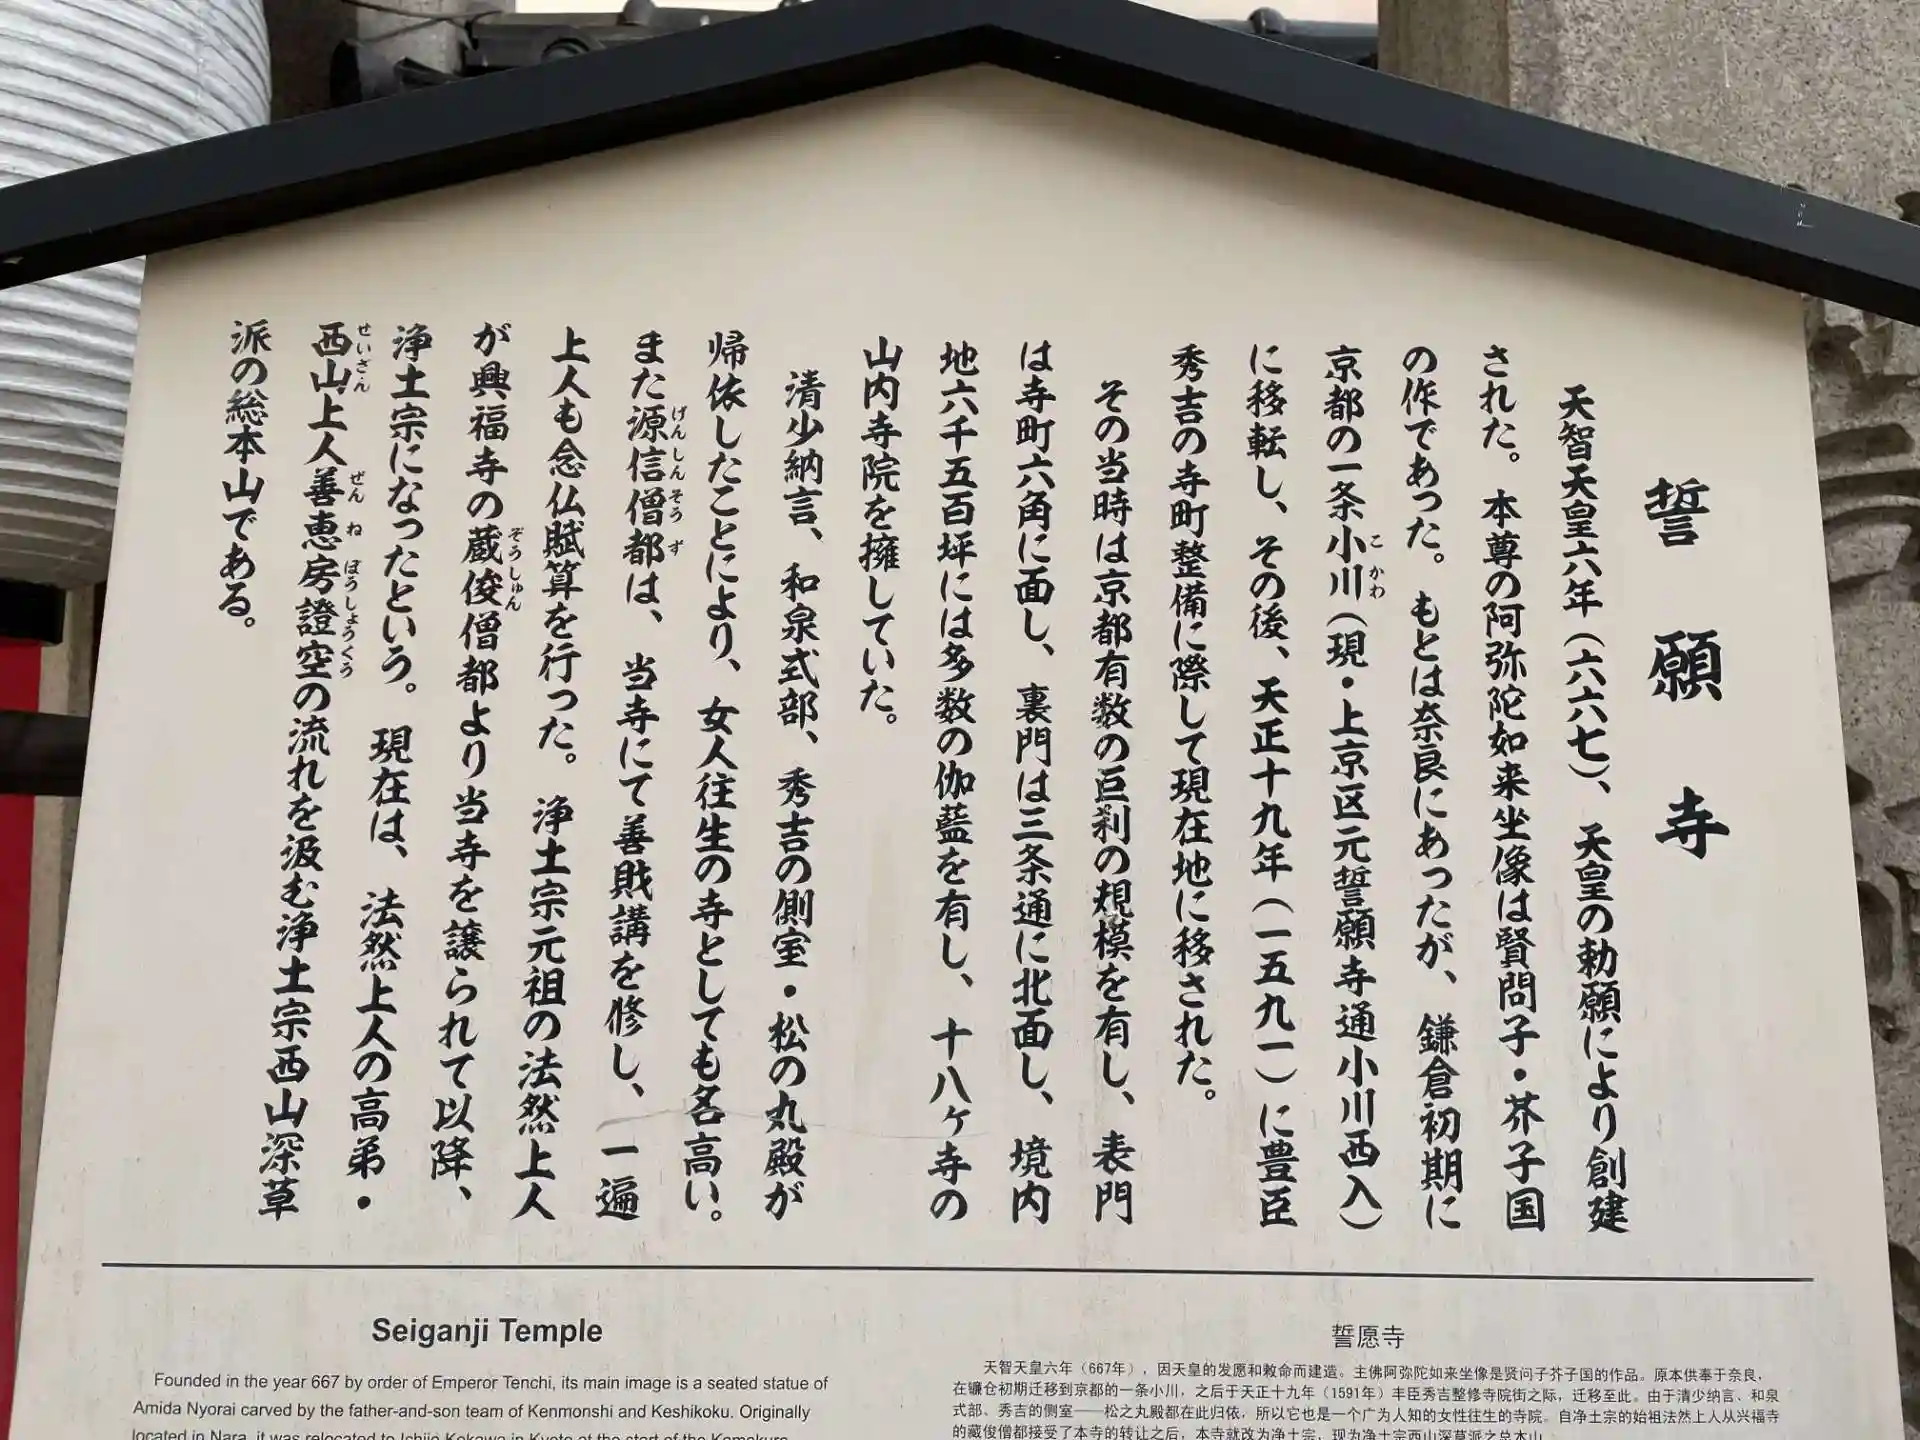 誓願寺
天智天皇六年（六六七）、天皇の勅願により創建
された。本尊の阿弥陀如来坐像は賢問子・芥子国
の作であった。もとは奈良にあったが、鎌倉初期に
京都の一条小川（現・上京区元誓願寺通小川西入）
こかわ
に移転し、その後、天正十九年（一五九一）に豊臣
秀吉の寺町整備に際して現在地に移された。
その当時は京都有数の巨刹の規模を有し、表門
は寺町六角に面し、裏門は三条通に北面し、境内
地六千五百坪には多数の伽藍を有し、十八ヶ寺の
山内寺院を擁していた。
清少納言、和泉式部、秀吉の側室・松の丸殿が
帰依したことにより、女人往生の寺としても名高い。
また源信僧都は、当寺にて善財講を修し、一遍
げんしんそうず
上人も念仏賦算を行った。浄土宗元祖の法然上人
が興福寺の蔵俊僧都より当寺を譲られて以降、
ぞうしゅん
浄土宗になったという。現在は、法然上人の高弟・
西山上人善恵房證空の流れを汲む浄土宗西山深草
せいざん ぜんねぼうしょうくう
派の総本山である。
Seiganji Temple
Founded in the year 667 by order of Emperor Tenchi, its main image is a seated statue of
Amida Nyorai carved by the father-and-son team of Kenmonshi and Keshikoku. Originally
located in Nara, it was relocated to Ichijo Kokawa in Kyoto at the start of the Kamakura
誓愿寺
天智天皇六年（667年），因天皇的发愿和敕命而建造。主佛阿弥陀如来坐像是贤问子芥子国的作品。原本供奉于奈良，
在镰仓初期迁移到京都的一条小川，之后于天正十九年（1591年）丰臣秀吉整修寺院街之际，迁移至此。由于清少纳言、和泉
式部、秀吉的侧室——松之丸殿都在此归依，所以它也是一个广为人知的女性往生的寺院。自净土宗的始祖法然上人从兴福寺
的藏俊僧都接受了本寺的转让之后，本寺就改为净土宗，现为净土宗西山深草派之总本山。